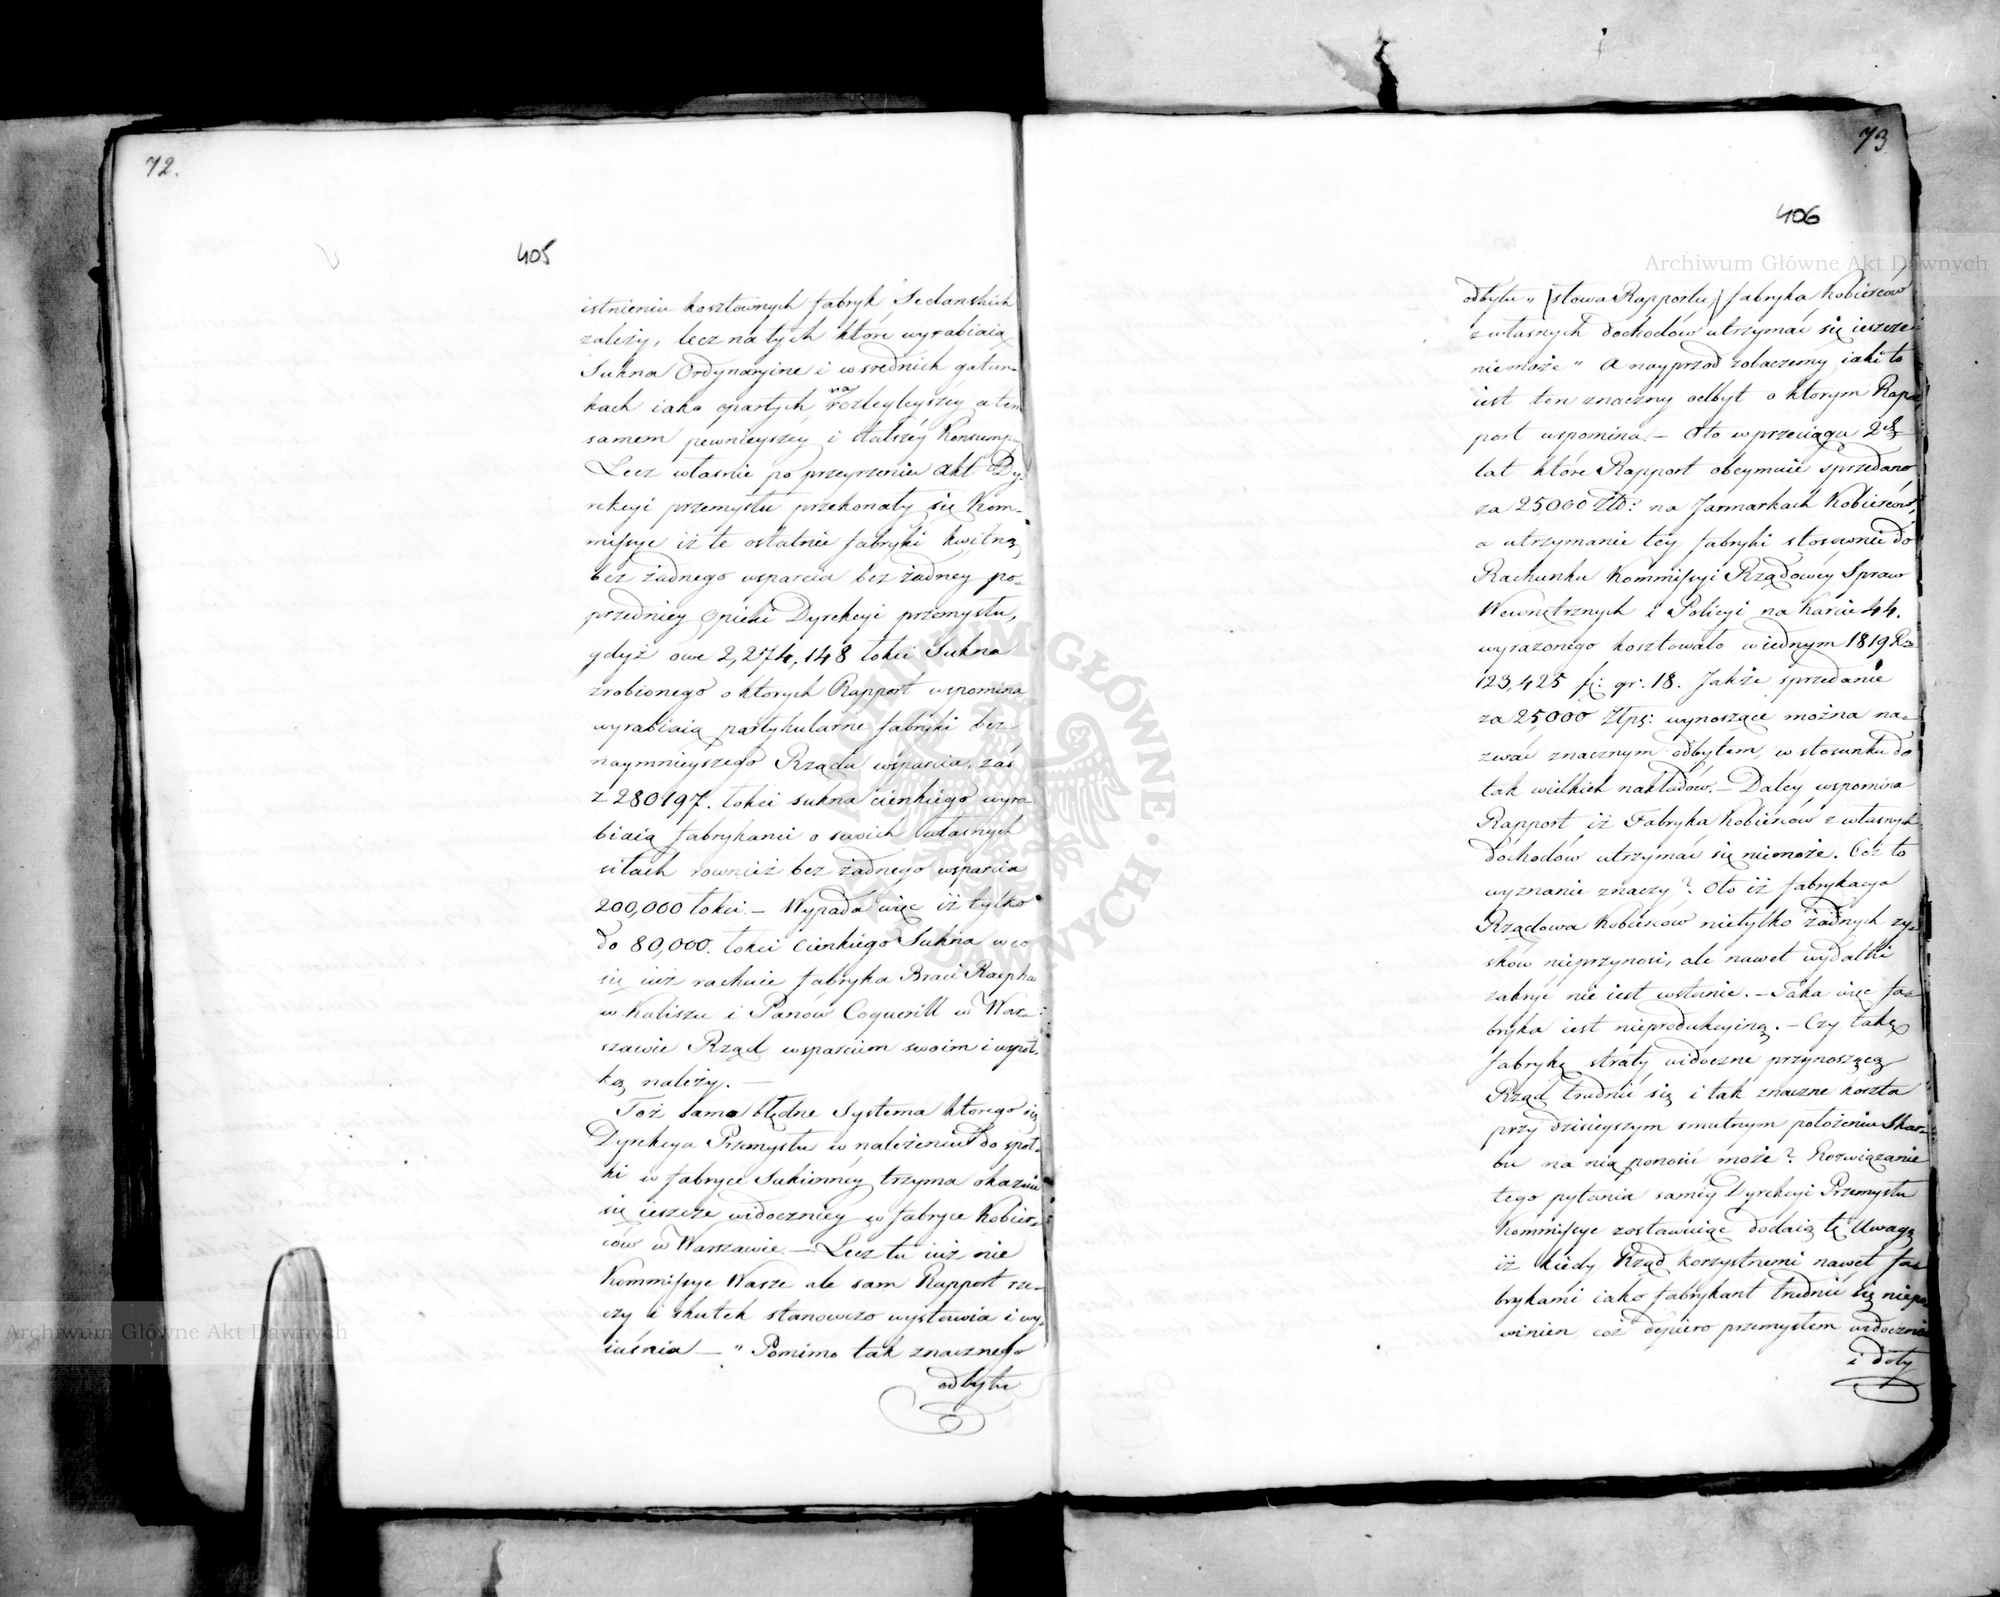 72.
405
istnieniu kosztownych fabryk Sedanskich
zależy, lecz na tych które wyrabiaią
Sukna Ordynaryine i w srednich gatun-
kach iako opartych na rozlegleyszéy a tem
samem pewnieyszéy i stalszéy Konsump
Lecz właśnie po przeyrzeniu Akt Dy-
rekcyi przemysłu przekonały się Kom-
missye iż te ostatnie fabryki kwitną
bez żadnego wsparcia bez żadney po-
przedniey Opieki Dyrekcyi przemysłu,
gdyż owe 2,274,148 łokci Sukna
zrobionego o ktorych Rapport wspomina
wyrabiaią partykularne fabryki bez
naymnieyszego Rządu wsparcia, zaś
z 280197. łokci sukna cienkiego wyra
biaią fabrykanci o swoich własnych
siłach rownież bez żadnego wsparcia
200,000 łokci. — Wypada więc iż tylko
do 80,000. łokci cienkiego Sukna w co
się iuż rachuie fabryka Braci Raepha
w Kaliszu i Panów Coquerill w War-
szawie Rząd wsparciem swoim i wspól-
ką należy. —
Toż samo błędne Systema ktorego się
Dyrekcya Przemysłu w należeniu do spół-
ki w fabryce Sukiennéy trzyma okazuie
się ieszcze widoczniey w fabryce Kobier-
ców w Warszawie. — Lecz tu iuż nie
Kommissye Wasze ale sam Rapport rze-
czy i skutek stanowczo wystawia i wy-
iaśnia — " Pomimo tak znacznego
odbytu
73
406
odbytu " /słowa Rapportu/ fabryka Kobierców
z własnych dochodów utrzymać się ieszcze
niemoże " A nayprzod zobaczemy iaki to
iest ten znaczny odbyt o ktorym Rap
port wspomina. — Oto w przeciągu 2ch
lat które Rapport obeymuie sprzedano
za 25,000 Złð: na Jarmarkach Kobierców,
a utrzymanie tey fabryki stosownie do
Rachunku Kommissyi Rządowéy Spraw
Wewnętrznych i Policyi na karcie 44.
wyrażonego kosztowało w iednym 1819 R
123,425 f: gr. 18. Jakże sprzedanie
za 25,000 Złpz: wynoszące można na-
zwać znacznym odbytem, w stosunku do
tak wielkich nakładów. — Daléy wspomina
Rapport iż Fabryka Kobierców z własnych
dochodów utrzymać się niemoże. Coż to
wyznanie znaczy? Oto iż fabrykacya
Rządowa Kobiercow nietylko żadnych zy-
skow nieprzynosi, ale nawet wydatki
zakryć nie iest wstanie. — Taka więc fa-
bryka iest nieprodukcyiną. — Czy taką
fabrykę straty widoczne przynoszącą
Rząd trudnić się i tak znaczne koszta
przy dzisieyszym smutnym położeniu Skar-
bu na nią ponosić może? Rozwiązanie
tego pytania saméy Dyrekcyi Przemysłu
Kommissye zostawuiąc dodaią tę Uwagę
iż kiedy Rząd korzystnemi nawet fa-
brykami iako fabrykant trudnić się niepo-
winien, coż dopiero przemysłem widocznie
i doty
Archiwum Główne Akt Dawnych
Archiwum Główne Akt Dawnych
ARCHIWUM GŁÓWNE AKT DAWNYCH